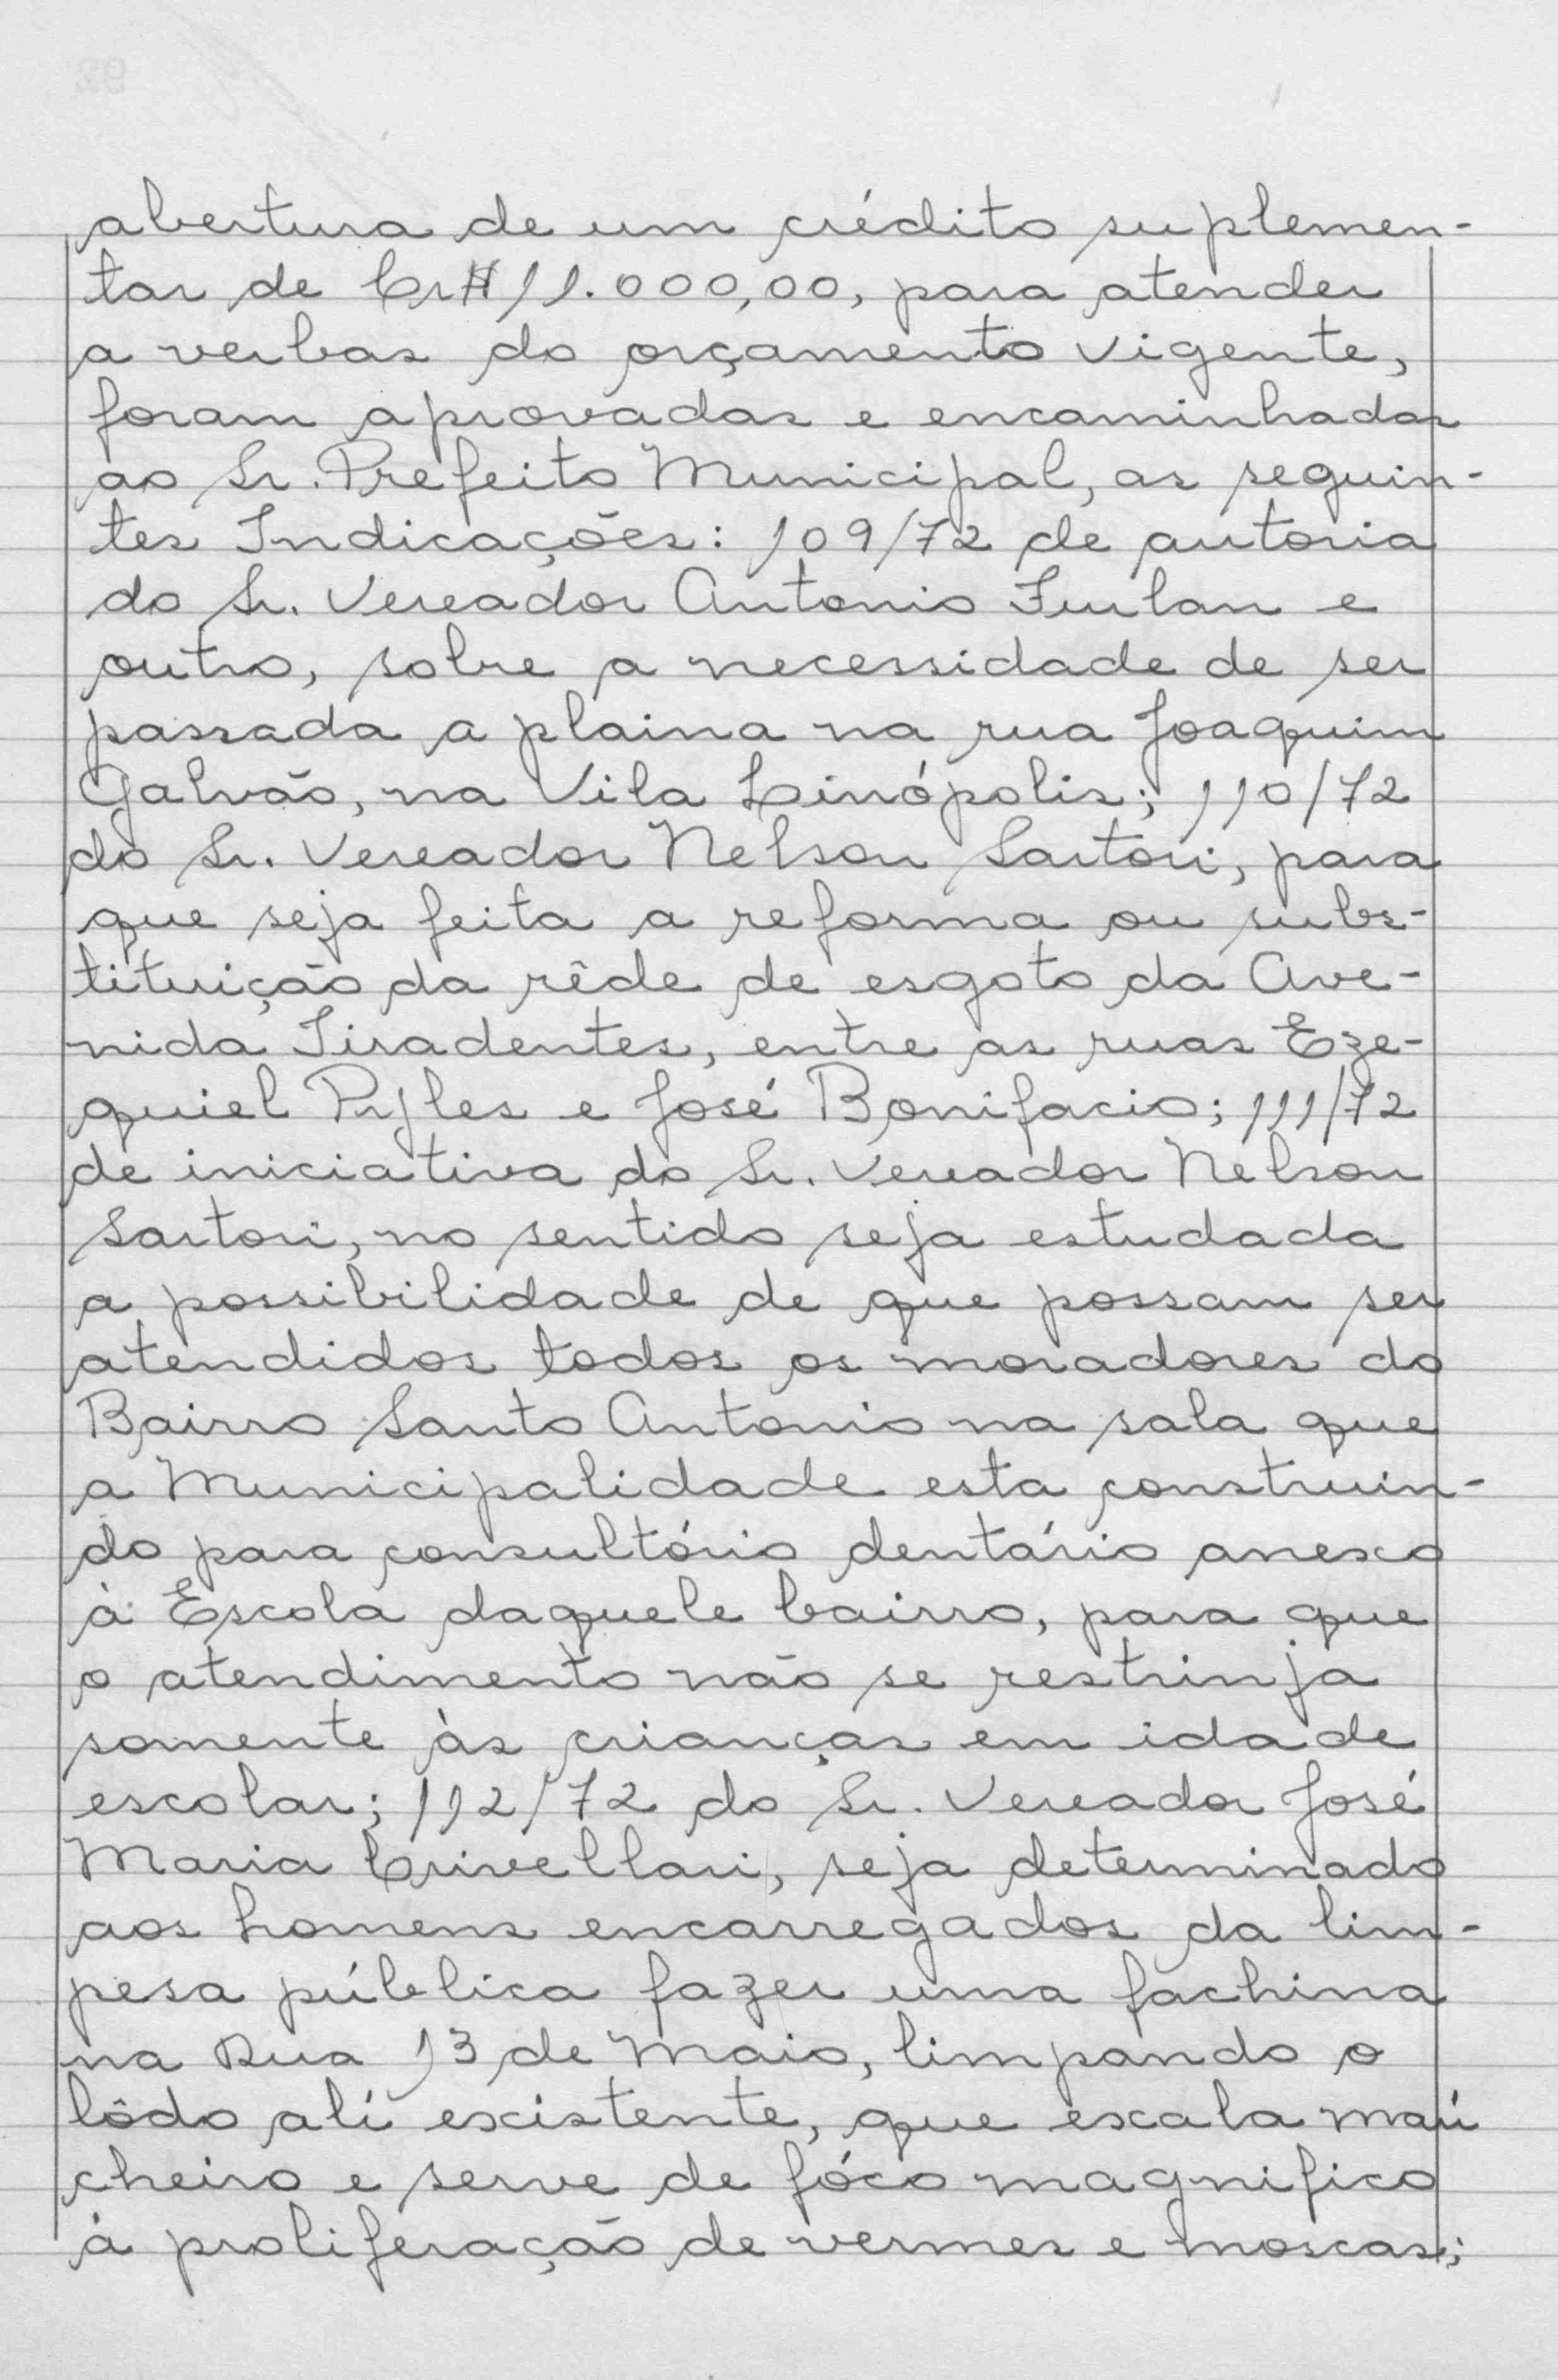 abertura de um crédito suplemen-
tar de Cr$ 11.000,00, para atender
a verbas do orçamento vigente,
foram aprovadas e encaminhadas
ao Sr. Prefeito Municipal, as seguin-
tes Indicações: 109/72 de autoria
do Sr. Vereador Antonio Furlan e
outro, sobre a necessidade de ser
passada a plaina na rua Joaquim
Galvão, na Vila Linópolis; 110/72
do Sr. Vereador Nelson Sartori, para
que seja feita a reforma ou subs-
tituição da rêde de esgoto da Ave-
nida Tiradentes, entre as ruas Eze-
quiel Pyles e José Bonifacio; 111/72
de iniciativa do Sr. Vereador Nelson
Sartori, no sentido seja estudada
a possibilidade de que possam ser
atendidos todos os moradores do
Bairro Santo Antonio na sala que
a Municipalidade esta construin-
do para consultório dentário anexo
à Escola daquele bairro, para que
o atendimento não se restrinja
somente às crianças em idade
escolar; 112/72 do Sr. Vereador José
Maria Crivellari, seja determinado
aos homens encarregados da lim-
pesa pública fazer uma fachina
na Rua 13 de Maio, limpando o
lôdo alí existente, que exala maú
cheiro e serve de fóco magnifico
à proliferação de vermes e moscas;